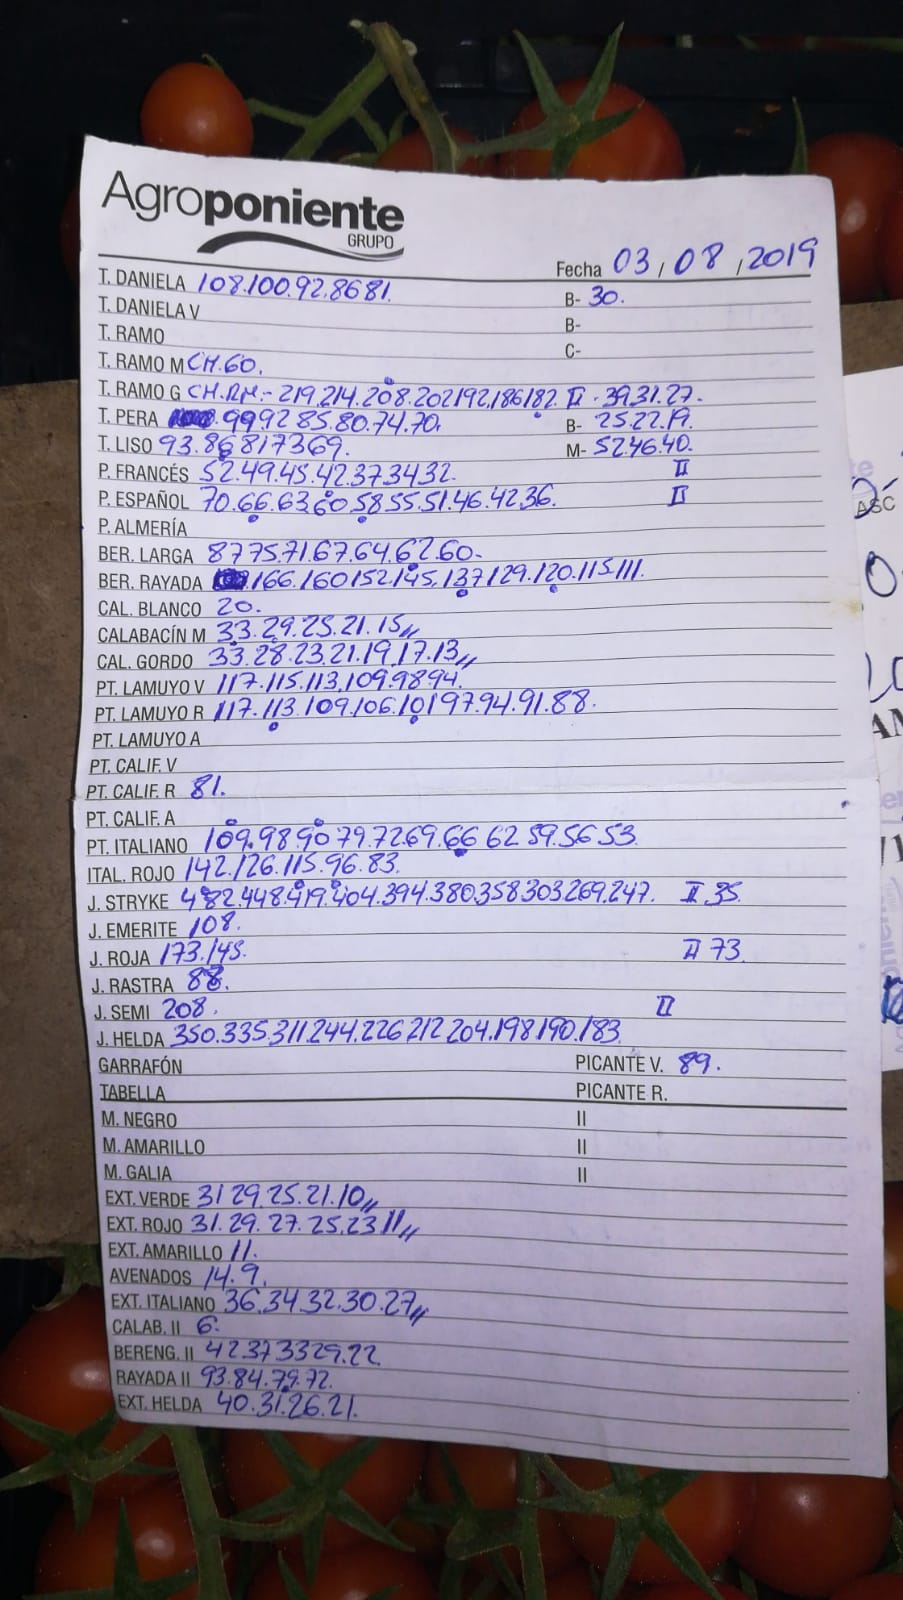 Agroponiente
GRUPO
Fecha 03/08/2019
T. DANIELA 108.100.92.8681. B- 30.
T. DANIELA V B-
T. RAMO C-
T. RAMO M CH.60.
T. RAMO G CH.RM.- 219.214.208.202192.186182. II - 39.31.27.
T. PERA .9992.85.80.74.70. B- 25.22.19.
T. LISO 93.86817369. M- 52.46.40.
P. FRANCÉS 52.49.45.42.373432. II
P. ESPAÑOL 70.66.63.60.5855.51.46.42.36. II
P. ALMERÍA
BER. LARGA 8775.71.67.64.62.60.
BER. RAYADA .166.160152.145.137129.120.115.111.
CAL. BLANCO 20.
CALABACÍN M 33.29.25.21.15,,
CAL. GORDO 33.28.23.21.19.17.13,,
PT. LAMUYO V 117.115.113.109.9894.
PT. LAMUYO R 117.113.109.106.10197.94.91.88.
PT. LAMUYO A
PT. CALIF. V
PT. CALIF. R 81.
PT. CALIF. A
PT. ITALIANO 109.98.90797269.66 62 59.56 53.
ITAL. ROJO 142.126.115.96.83.
J. STRYKE 482.448.419.404.394.380.358303269.247. II 35.
J. EMERITE 108.
J. ROJA 173.145. II 73.
J. RASTRA 88.
J. SEMI 208. II
J. HELDA 350.335.311.244.226212204.198190.183.
GARRAFÓN PICANTE V. 89.
TABELLA PICANTE R.
M. NEGRO II
M. AMARILLO II
M. GALIA II
EXT. VERDE 31 29.25.21.10,,
EXT. ROJO 31.29.27.25.23 11,,
EXT. AMARILLO 11.
AVENADOS 14.9.
EXT. ITALIANO 36.34.32.30.27,,
CALAB. II 6.
BERENG. II 42.373329.22.
RAYADA II 93.84.79.72.
EXT. HELDA 40.31.26.21.